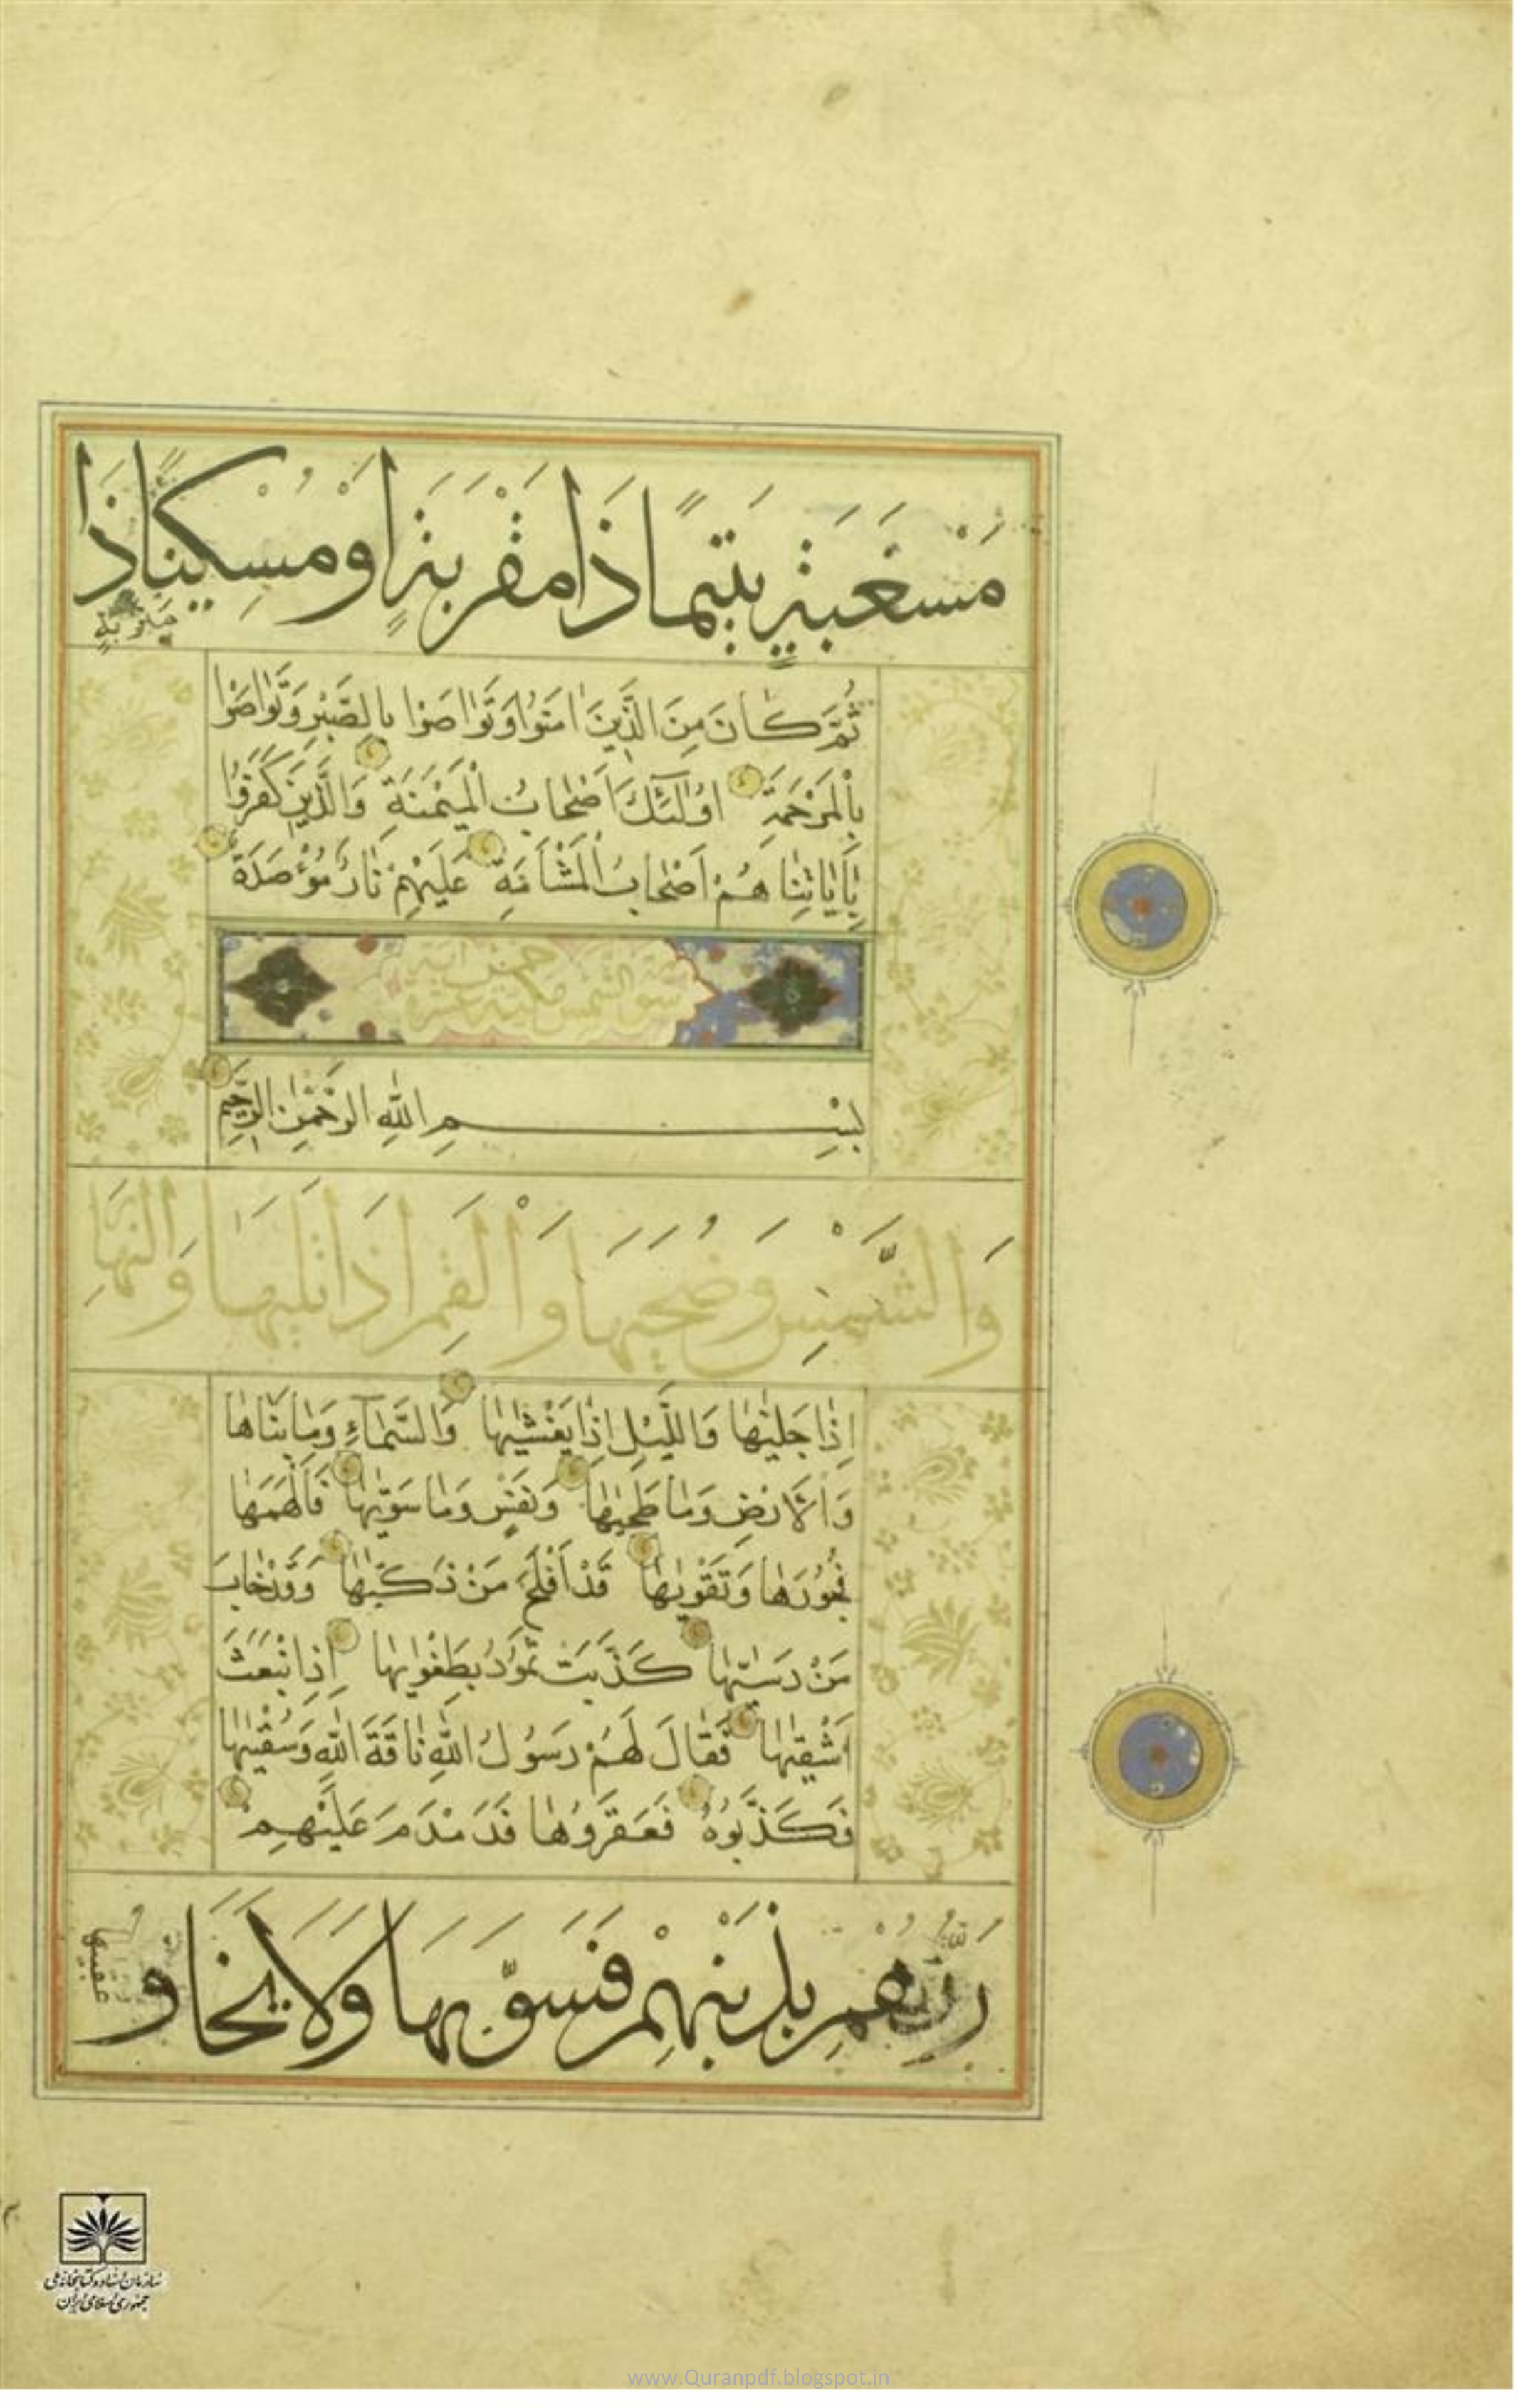 مَسْغَبَةٍ يَتِيمًا ذَا مَقْرَبَةٍ اَوْ مِسْكِينًا ذَا
مَتْرَبَةٍ
ثُمَّ كَانَ مِنَ الَّذِينَ اٰمَنُوا وَتَوَاصَوْا بِالصَّبْرِ وَتَوَاصَوْا
بِالْمَرْحَمَةِ اُولٰئِكَ اَصْحَابُ الْمَيْمَنَةِ وَالَّذِينَ كَفَرُوا
بِاٰيَاتِنَا هُمْ اَصْحَابُ الْمَشْأَمَةِ عَلَيْهِمْ نَارٌ مُؤْصَدَةٌ
سورة الشمس مكية خمس عشرة آية
بِسْمِ اللهِ الرَّحْمٰنِ الرَّحِيمِ
وَالشَّمْسِ وَضُحٰيهَا وَالْقَمَرِ اِذَا تَلٰيهَا وَالنَّهَارِ
اِذَا جَلّٰيهَا وَاللَّيْلِ اِذَا يَغْشٰيهَا وَالسَّمَاءِ وَمَا بَنَاهَا
وَالْاَرْضِ وَمَا طَحٰيهَا وَنَفْسٍ وَمَا سَوّٰيهَا فَاَلْهَمَهَا
فُجُورَهَا وَتَقْوٰيهَا قَدْ اَفْلَحَ مَنْ زَكّٰيهَا وَقَدْ خَابَ
مَنْ دَسّٰيهَا كَذَّبَتْ ثَمُودُ بِطَغْوٰيهَا اِذِ انْبَعَثَ
اَشْقٰيهَا فَقَالَ لَهُمْ رَسُولُ اللهِ نَاقَةَ اللهِ وَسُقْيٰهَا
فَكَذَّبُوهُ فَعَقَرُوهَا فَدَمْدَمَ عَلَيْهِمْ
رَبُّهُمْ بِذَنْبِهِمْ فَسَوّٰيهَا وَلَا يَخَافُ
عقبيها
سازمان اسناد و کتابخانه ملی
جمهوری اسلامی ایران
www.Quranpdf.blogspot.in